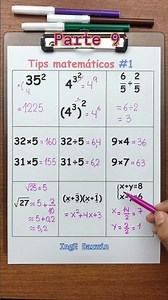 Parte 9
Tips matemáticos #1
35²
= 1225
4^3^2 = 4^9
(4^3)^2 = 4^6
6/5 ÷ 2/5
= 6÷2
= 3
32×5 = 160
31×5 = 155
32÷5 = 6,4
31÷5 = 6,2
9×4 = 36
9×7 = 63
√25 = 5
√27 ≈ 5 + 2/10
≈ 5 + 0,2
≈ 5,2
(x+3)(x+1)
= x² + 4x + 3
x+y=8
x = 14/2 = 7
y = 2/2 = 1
IngE Darwin